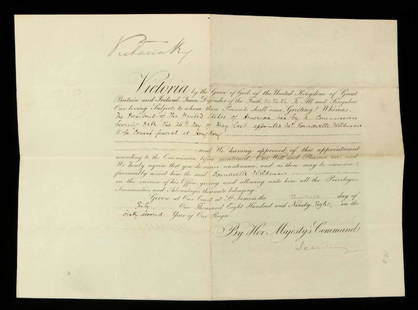 Victoria R
Victoria by the Grace of God, of the United Kingdom of Great
Britain and Ireland, Queen, Defender of the Faith, &c &c &c. To All and Singular
Our loving Subjects to whom these Presents shall come, Greeting! Whereas,
The President of the United States of America has by a Commission
bearing date the day of May last appointed Mr Rounsevelle Wildman
to be Consul General at Hong Kong
and We having approved of this appointment
according to the Commission before mentioned, Our Will and Pleasure are and
We hereby require that you do receive countenance, and as there may be occasion
favourably assist him the said Rounsevelle Wildman
in the exercise of his Office, giving and allowing unto him all the Privileges
Immunities and Advantages thereunto belonging.
Given at Our Court at St. James's the day of
July One Thousand Eight Hundred and Ninety Eight, in the
Sixty second Year of Our Reign
By Her Majesty's Command